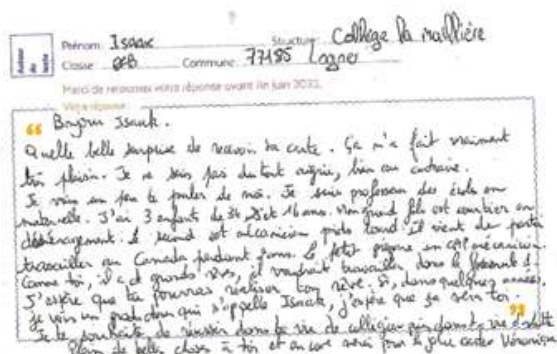 Auteur du texte
Prénom Isaak Structure Collège la maillière
Classe 6eB Commune 77185 Lognes
Merci de retourner votre réponse avant fin juin 2022.
Votre réponse
Bonjour Isaak.
Quelle belle surprise de recevoir ta carte. Ça m'a fait vraiment
très plaisir. Je ne suis pas du tout aigrie, bien au contraire.
Je vais un peu te parler de moi. Je suis professeur des écoles en
maternelle. J'ai 3 enfants de et 16 ans. Mon grand fils est
déménagement. Le second est mécanicien poids lourd il vient de partir
travailler au Canada pendant Le petit prépare un CAP mécanicien.
Comme toi, il a de grands rêves, il voudrait travailler dans la formule 1.
J'espère que tu pourras réaliser ton rêve. Si, dans quelques années,
je vois un qui s'appelle Isaak, j'espère que ce sera toi
Je te souhaite de réussir dans ta vie de collégien puis dans ta vie d'adulte
Plein de belles choses à toi et encore merci pour ta jolie carte Véronique